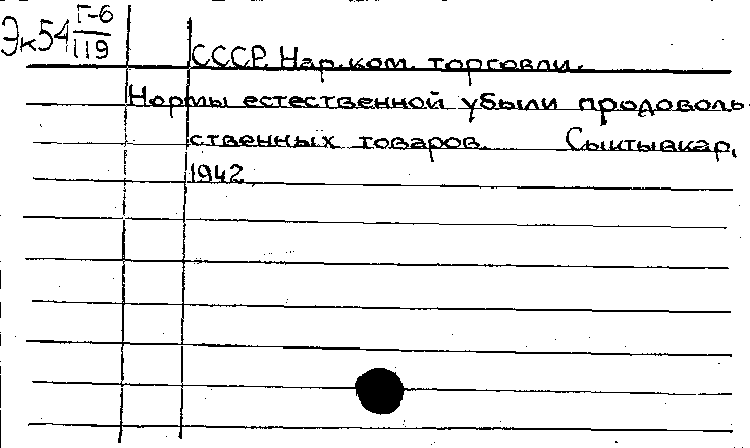 Эк54 Г-6/119
СССР. Нар.ком. торговли.
Нормы естественной убыли продоволь-
ственных товаров. Сыктывкар,
1942